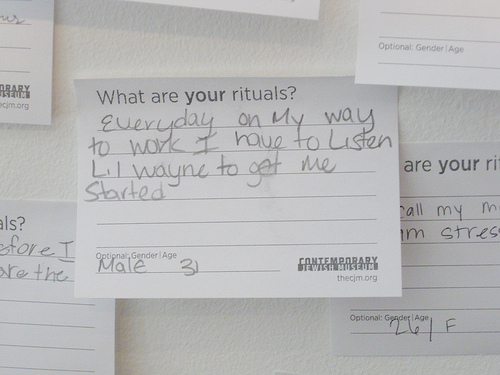 What are your rituals?
Everyday on My way
to work I have to Listen
Lil wayne to get me
Started
Optional: Gender|Age
Male 31
CONTEMPORARY
JEWISH MUSEUM
thecjm.org
Optional: Gender|Age
ecjm.org
are your rit
call my m
m stress
Optional: Gender|Age
26/ F
als?
efore I
are the